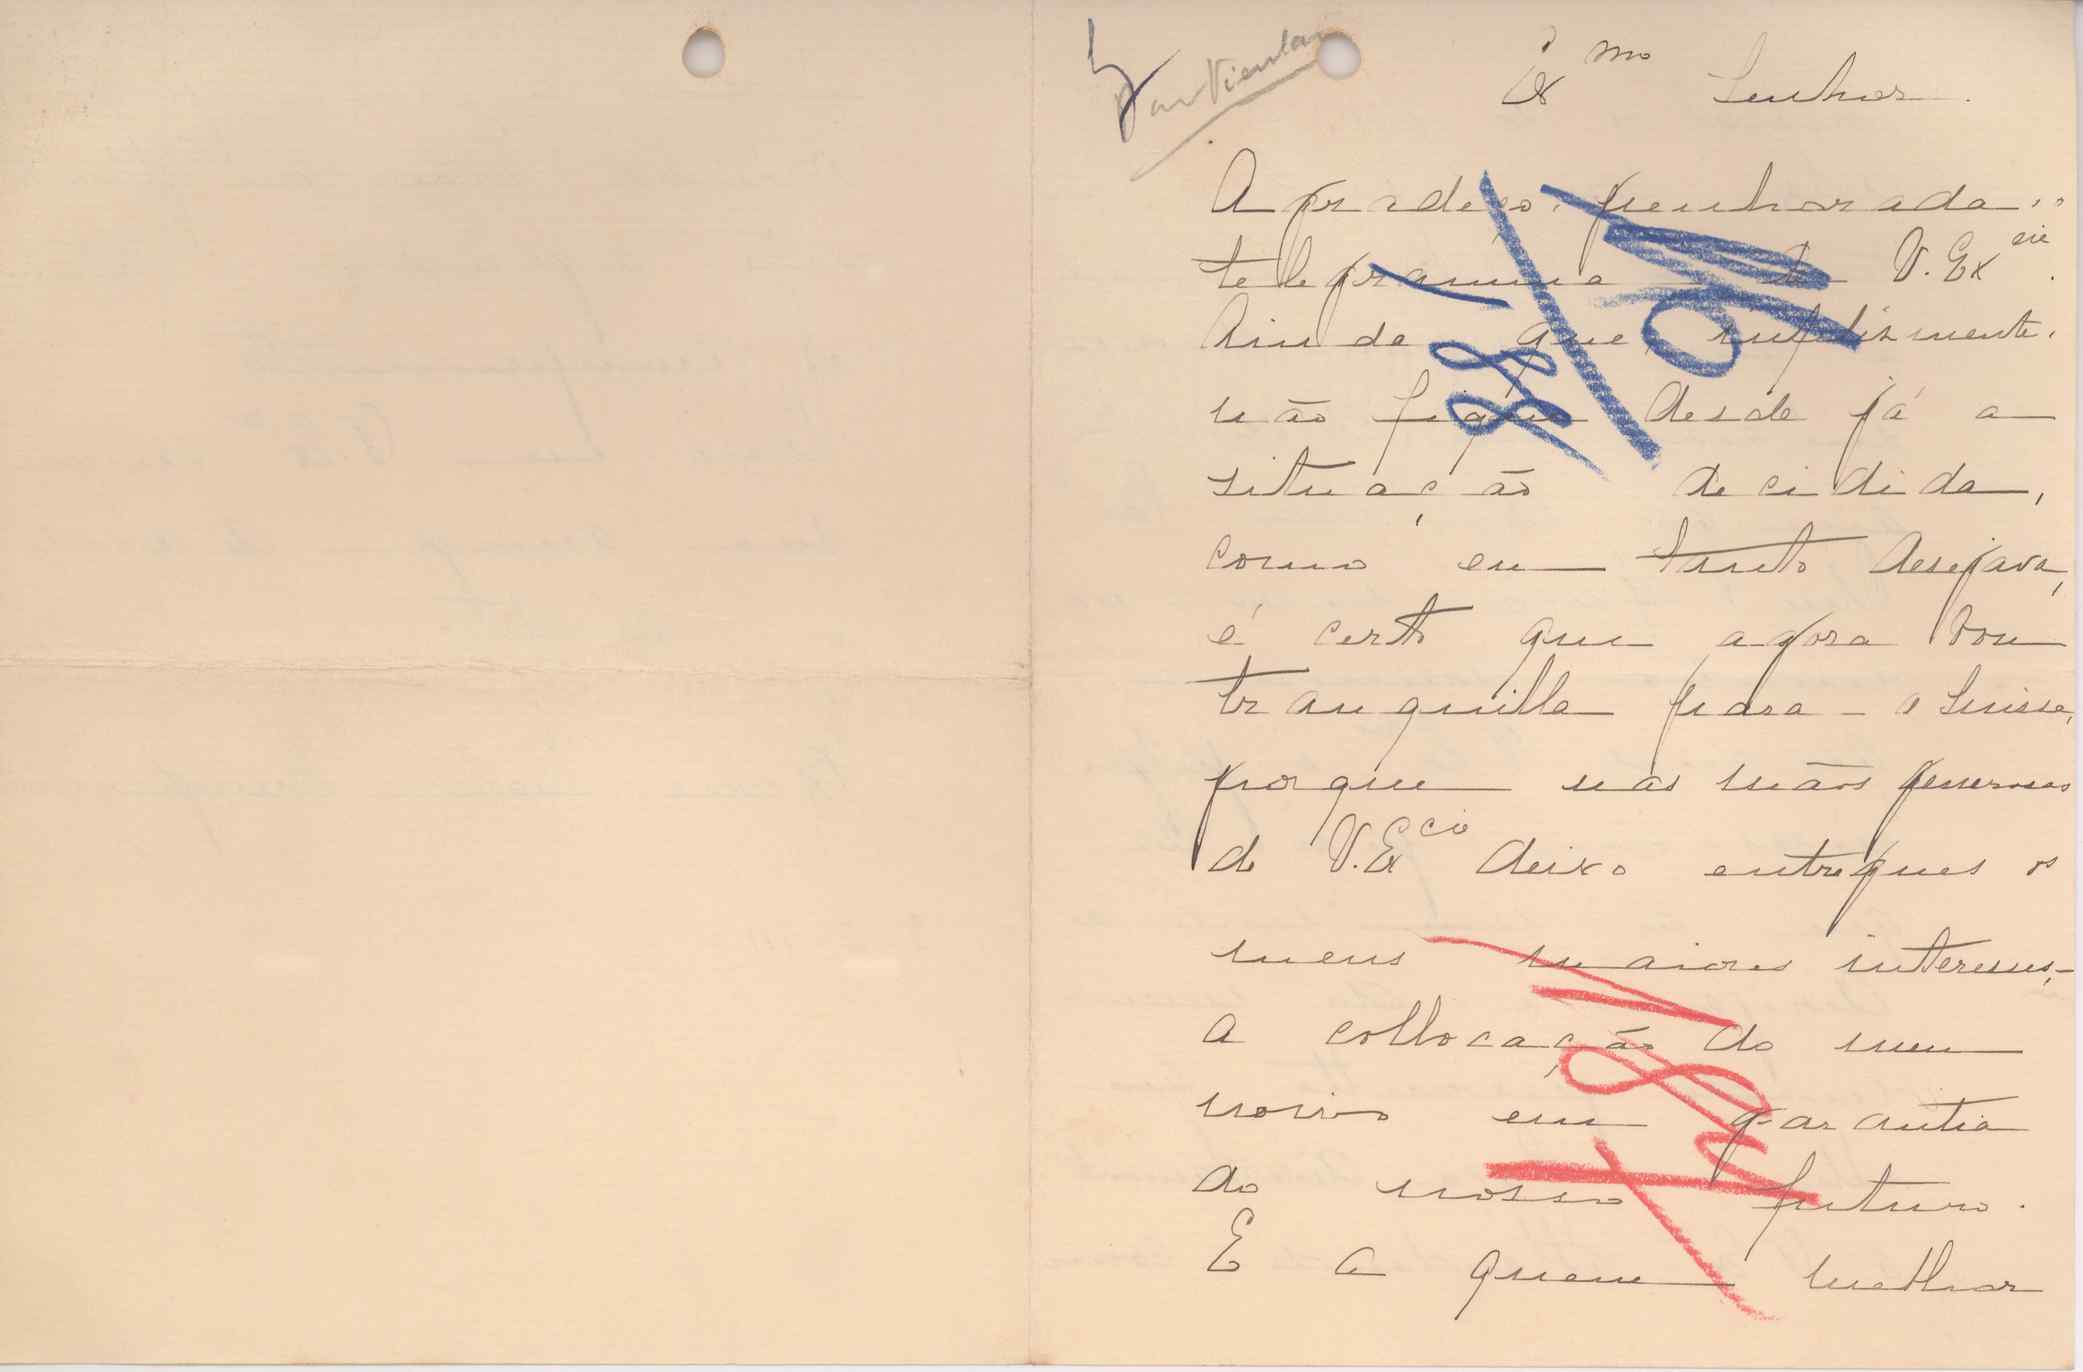 Particular
Exmo Senhor.
Agradeço, penhorada, o
telegramma de V. Excia.
Ainda que, infelizmente,
não fique desde já a
situação decidida,
como eu tanto desejava,
é certo que agora vou
tranquilla para a Suissa,
porque nas mãos generosas
de V. Excia deixo entregues os
meus maiores interesses, -
a collocação do meu
noivo em garantia
do nosso futuro.
E a quem melhor